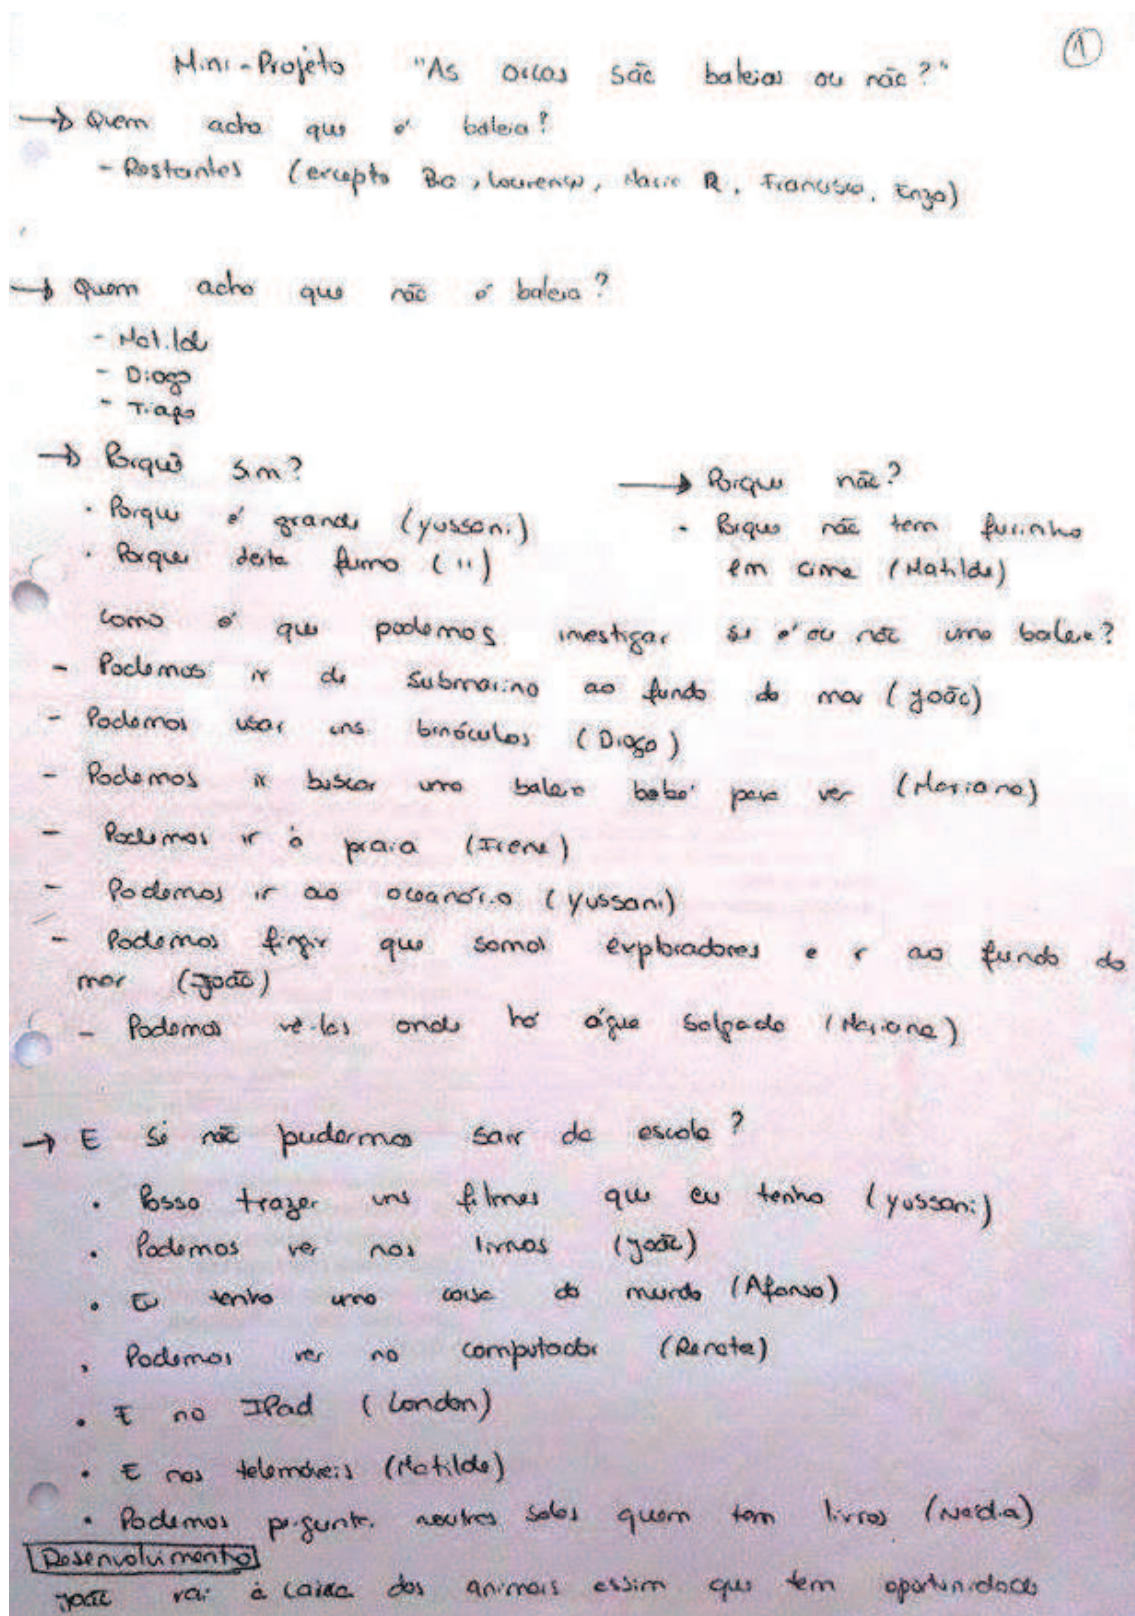 1
Mini-Projeto "As orcas são baleias ou não?"
→ Quem acha que é baleia?
- Restantes (excepto Bia, Lourenço, Maria R., Francisco, Enzo)
→ Quem acha que não é baleia?
- Matilde
- Diogo
- Tiago
→ Porquê sim?
• Porque é grande (Yussani)
• Porque deita fumo ( " )
→ Porque não?
- Porque não tem furinho
em cima (Matilde)
Como é que podemos investigar se é ou não uma baleia?
- Podemos ir de submarino ao fundo do mar (João)
- Podemos usar uns binóculos (Diogo)
- Podemos ir buscar uma baleia bebé para ver (Mariana)
- Podemos ir à praia (Irene)
- Podemos ir ao oceanário (Yussani)
- Podemos fingir que somos exploradores e ir ao fundo do
mar (João)
- Podemos vê-las onde há água salgada (Mariana)
→ E se não pudermos sair da escola?
• Posso trazer uns filmes que eu tenho (Yussani)
• Podemos ver nos livros (João)
• Eu tenho uma coisa do mundo (Afonso)
• Podemos ver no computador (Renata)
• E no IPad (London)
• E nos telemóveis (Matilde)
• Podemos perguntar noutras salas quem tem livros (Nádia)
Desenvolvimento
João vai à caixa dos animais assim que tem oportunidade